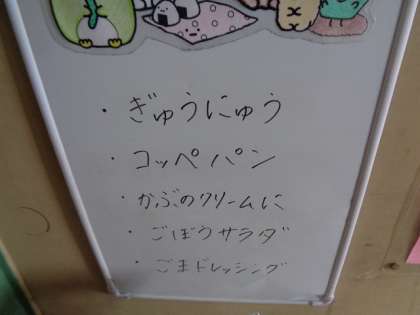 ・ぎゅうにゅう
・コッペパン
・かぶのクリームに
・ごぼうサラダ
・ごまドレッシング